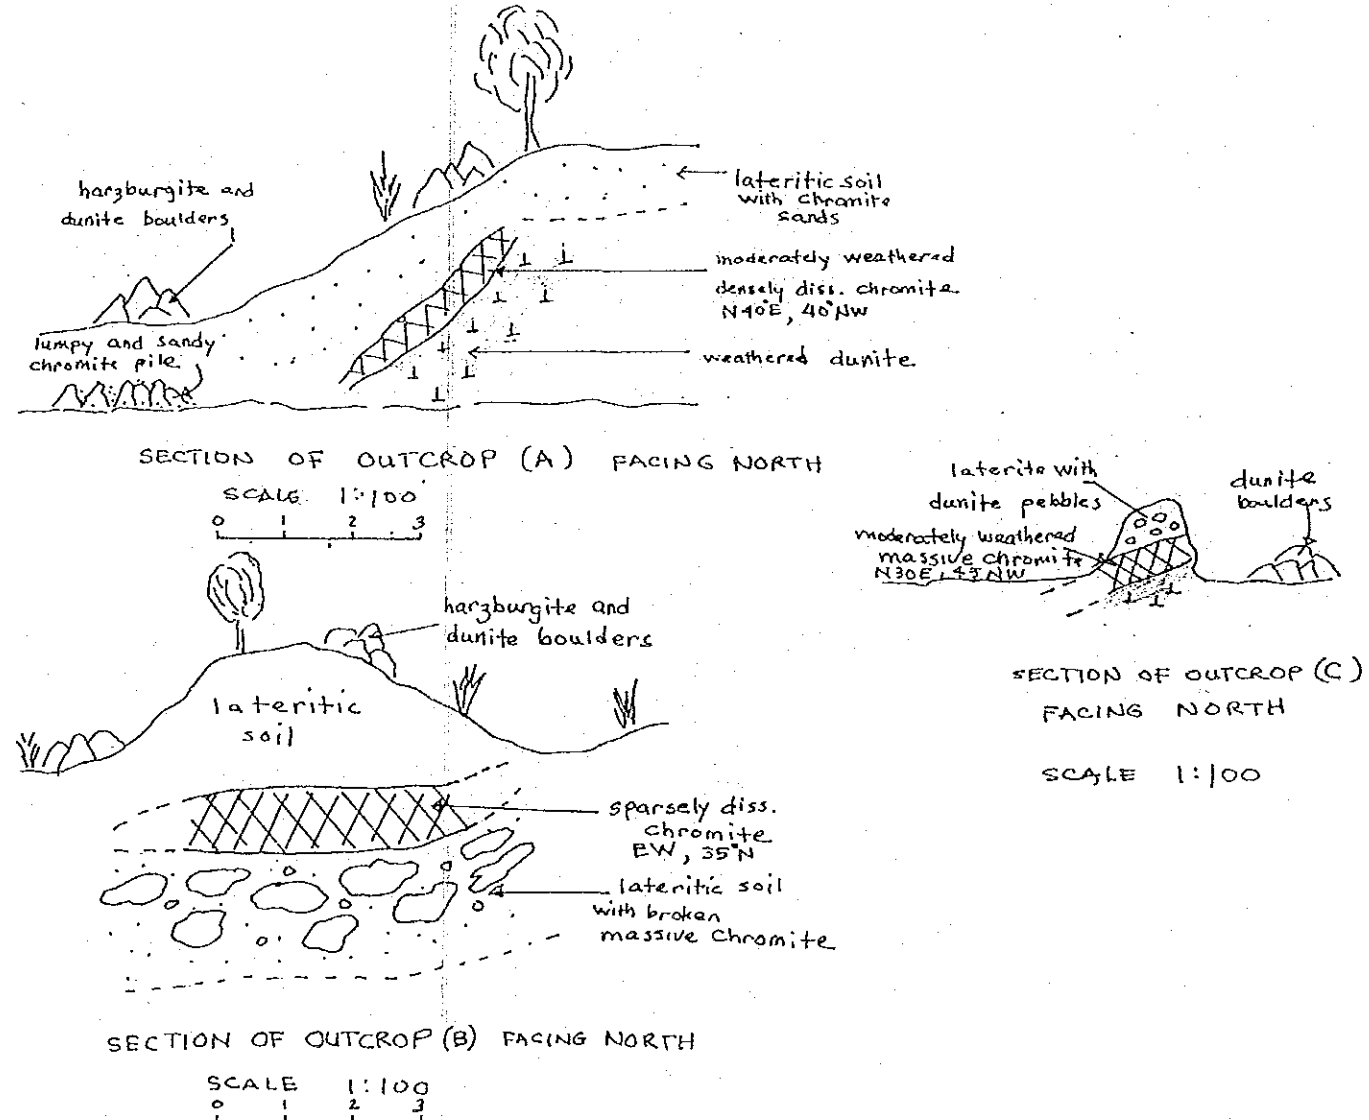 harzburgite and
dunite boulders
lateritic soil
with chromite
sands
moderately weathered
densely diss. chromite
N40°E, 40°NW
lumpy and sandy
chromite pile
weathered dunite
SECTION OF OUTCROP (A) FACING NORTH
SCALE 1:100
0 1 2 3
harzburgite and
dunite boulders
lateritic
soil
sparsely diss.
chromite
EW, 35°N
lateritic soil
with broken
massive Chromite
SECTION OF OUTCROP (B) FACING NORTH
SCALE 1:100
0 1 2 3
laterite with
dunite pebbles
dunite
boulders
moderately weathered
massive chromite
N30E, 45NW
SECTION OF OUTCROP (C)
FACING NORTH
SCALE 1:100